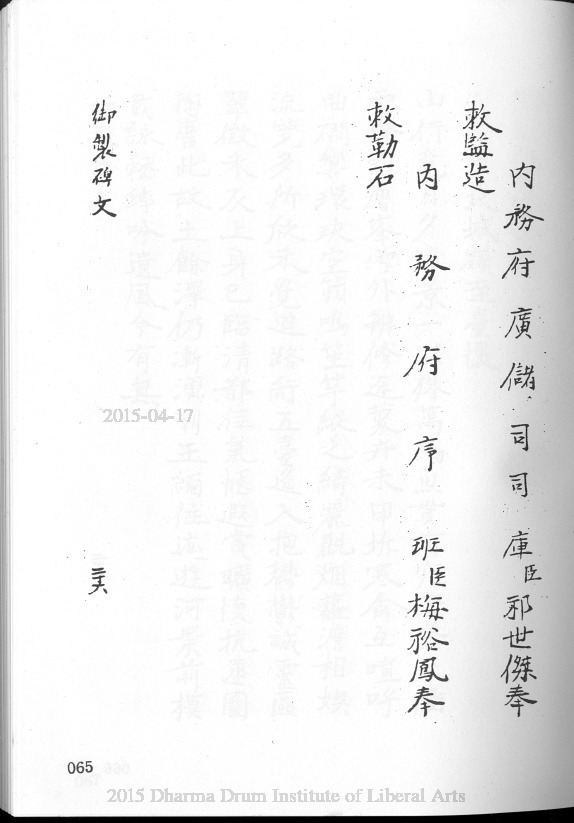 內務府廣儲司司庫臣祁世傑奉
敕監造
內務府序班臣梅裕鳳奉
敕勒石
御製碑文
三六
2015-04-17
065
2015 Dharma Drum Institute of Liberal Arts